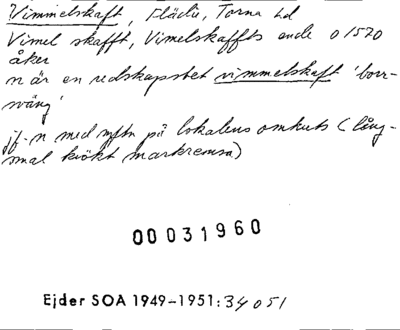 Vimmelskaft, Flädie, Torna hd
Vimel skafft, Vimelskaffts ende 01570
åker
n är en redskapsbet vimmelskaft 'borr-
sväng'
jf. n med mftn på lokalens omkrets (lång-
smal krökt markremsa)
00031960
Ejder SOA 1949-1951: 34051